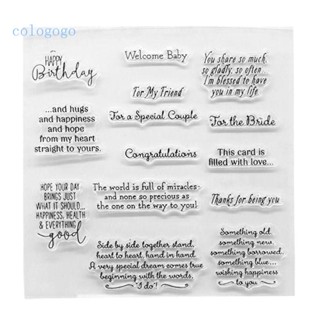 cologogo
HAPPY
Birthday
Welcome Baby
You share so much
so gladly, so often
I'm blessed to have
you in my life.
For My Friend
...and hugs
and happiness
and hope
from my heart
straight to yours.
For a Special Couple
For the Bride
Congratulations
This card is
filled with love...
HOPE YOUR DAY
BRINGS JUST
WHAT IT SHOULD...
HAPPINESS, HEALTH
& EVERYTHING
good
The world is full of miracles
and none so precious as
the one on the way to you!
Thanks for being you
Side by side together stand,
heart to heart, hand in hand.
A very special dream comes true
beginning with the words,
"I do"!
Something old,
something new
something borrowed,
something blue...
wishing happiness
to you